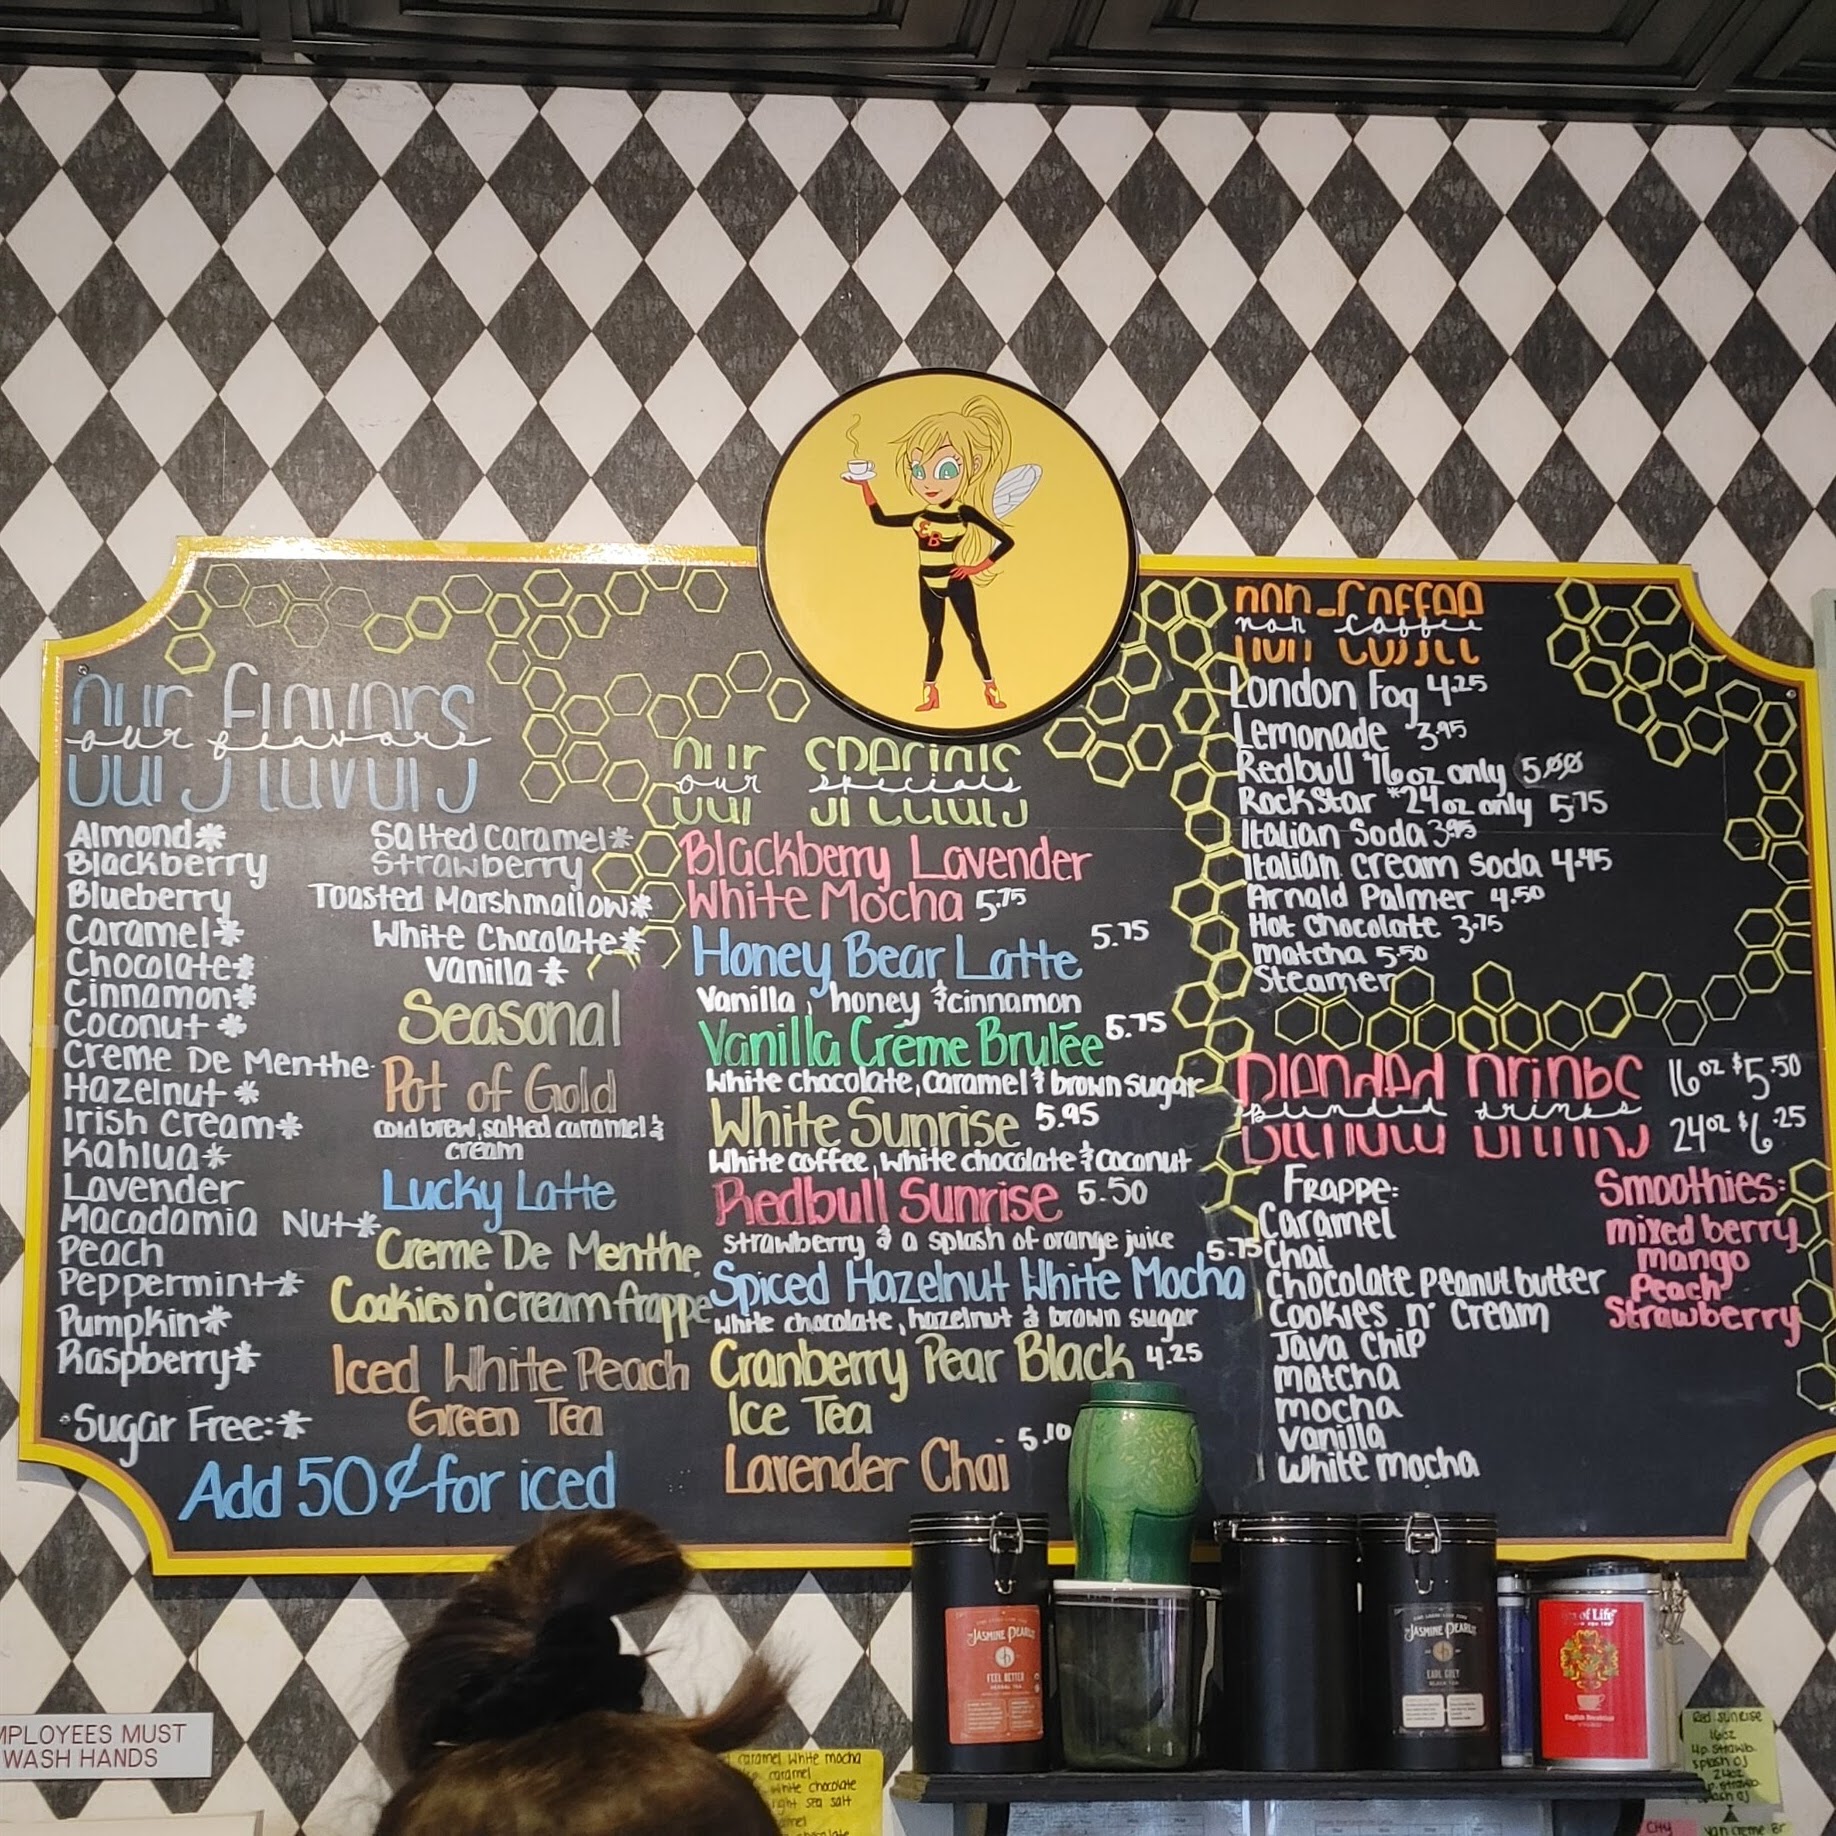 EB
our flavors
Almond*
Blackberry
Blueberry
Caramel*
Chocolate*
Cinnamon*
Coconut *
Creme De Menthe
Hazelnut *
Irish Cream*
Kahlua*
Lavender
Macadamia Nut*
Peach
Peppermint*
Pumpkin*
Raspberry*
Sugar Free:*
Add 50¢ for iced
Salted Caramel*
Strawberry
Toasted Marshmallow*
White Chocolate*
Vanilla *
Seasonal
Pot of Gold
cold brew, salted caramel &
cream
Lucky Latte
Creme De Menthe
Cookies n' cream frappe
Iced White Peach
Green Tea
our specials
Blackberry Lavender
White Mocha 5.75
Honey Bear Latte 5.75
Vanilla, honey & cinnamon
Vanilla Créme Brulée 5.75
White chocolate, caramel & brown sugar
White Sunrise 5.95
White coffee, white chocolate & coconut
Redbull Sunrise 5.50
strawberry & a splash of orange juice
Spiced Hazelnut White Mocha 5.75
White chocolate, hazelnut & brown sugar
Cranberry Pear Black 4.25
Ice Tea
Lavender Chai 5.10
non-coffee
non coffee
London Fog 4.25
Lemonade 3.95
Redbull *16oz only 5.00
Rockstar *24oz only 5.75
Italian Soda 3.95
Italian cream soda 4.45
Arnold Palmer 4.50
Hot Chocolate 3.75
Matcha 5.50
Steamer
Blended Drinks 16oz $5.50
blended drinks 24oz $6.25
Frappe:
Caramel
Chai
Chocolate Peanut butter
Cookies n' Cream
Java Chip
matcha
mocha
vanilla
white mocha
Smoothies:
mixed berry
mango
Peach
Strawberry
MPLOYEES MUST
WASH HANDS
caramel white mocha
caramel
white chocolate
sea salt
JASMINE PEARLS
FEEL BETTER
HERBAL TEA
JASMINE PEARLS
EARL GREY
BLACK TEA
of Life
English Breakfast
Red Sunrise
16oz
splash oj
24oz
splash oj